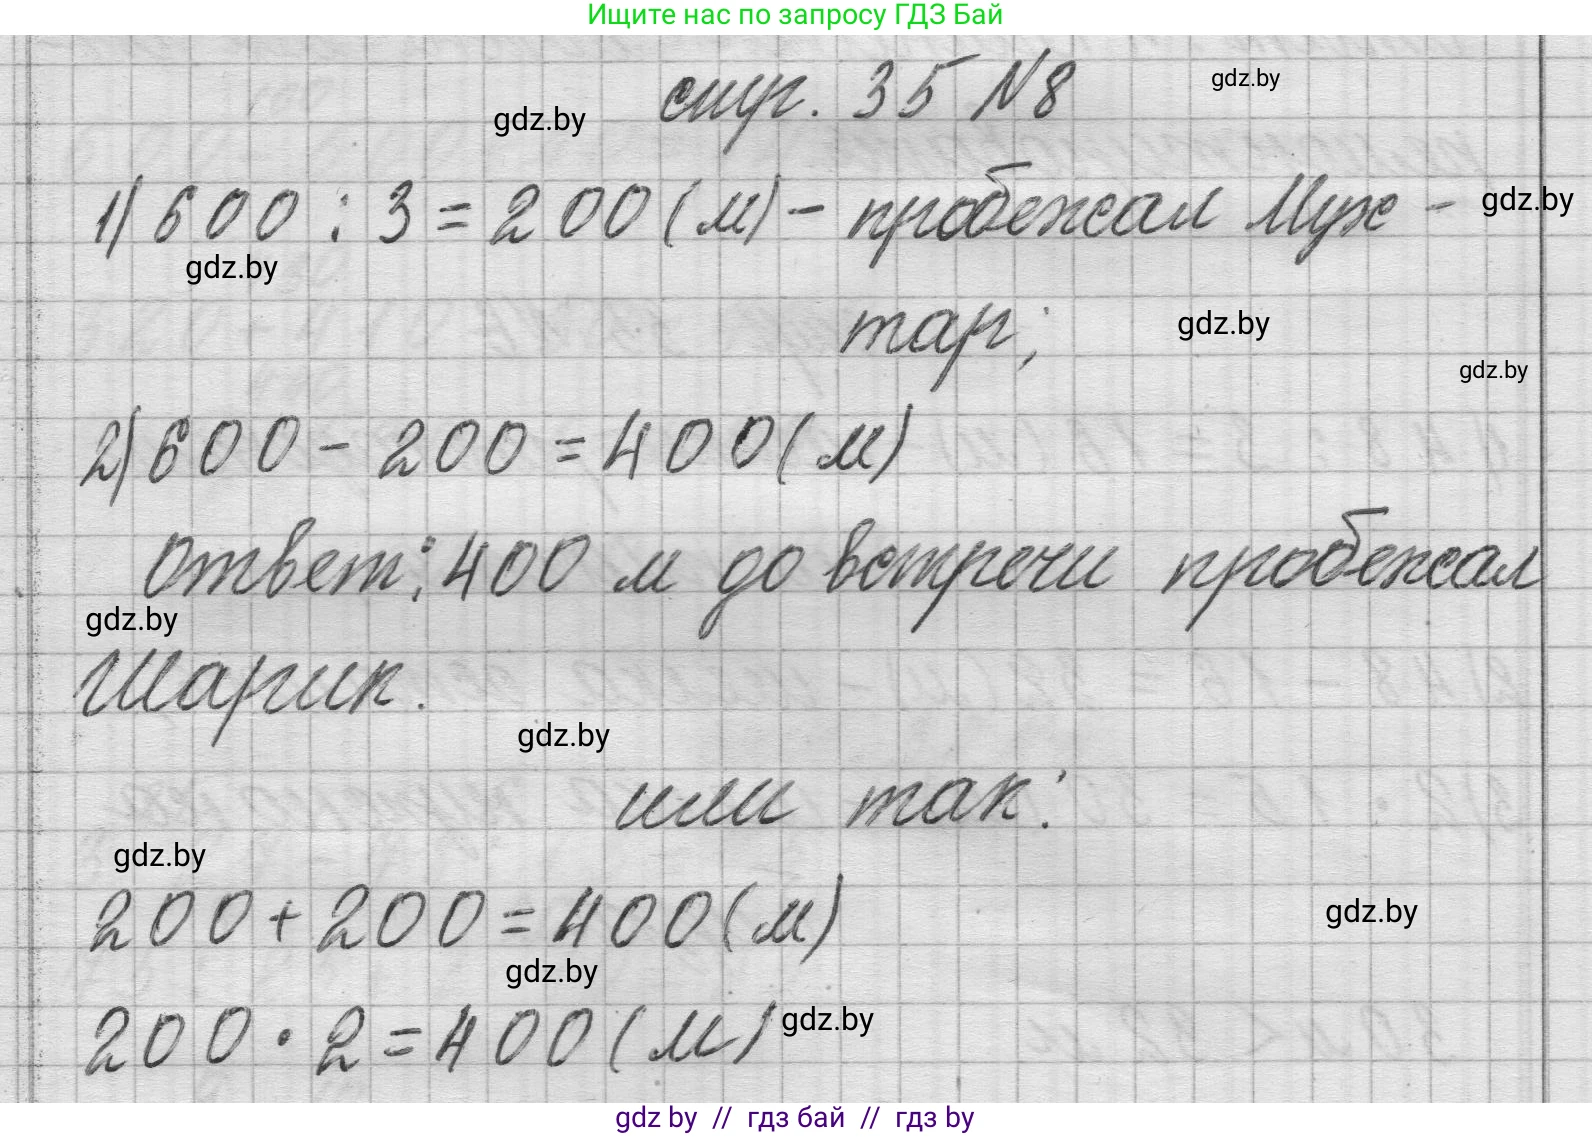 Ищите нас по запросу ГДЗ Бай
стр. 35 №8
gdz.by
gdz.by
1) 600 : 3 = 200 (м) - пробежал Мух -
gdz.by
gdz.by
тар;
gdz.by
gdz.by
2) 600 - 200 = 400 (м)
Ответ: 400 м до встречи пробежал
gdz.by
Шарик.
gdz.by
или так:
gdz.by
200 + 200 = 400 (м)
gdz.by
gdz.by
200 · 2 = 400 (м)
gdz.by
gdz by // гдз бай // гдз by